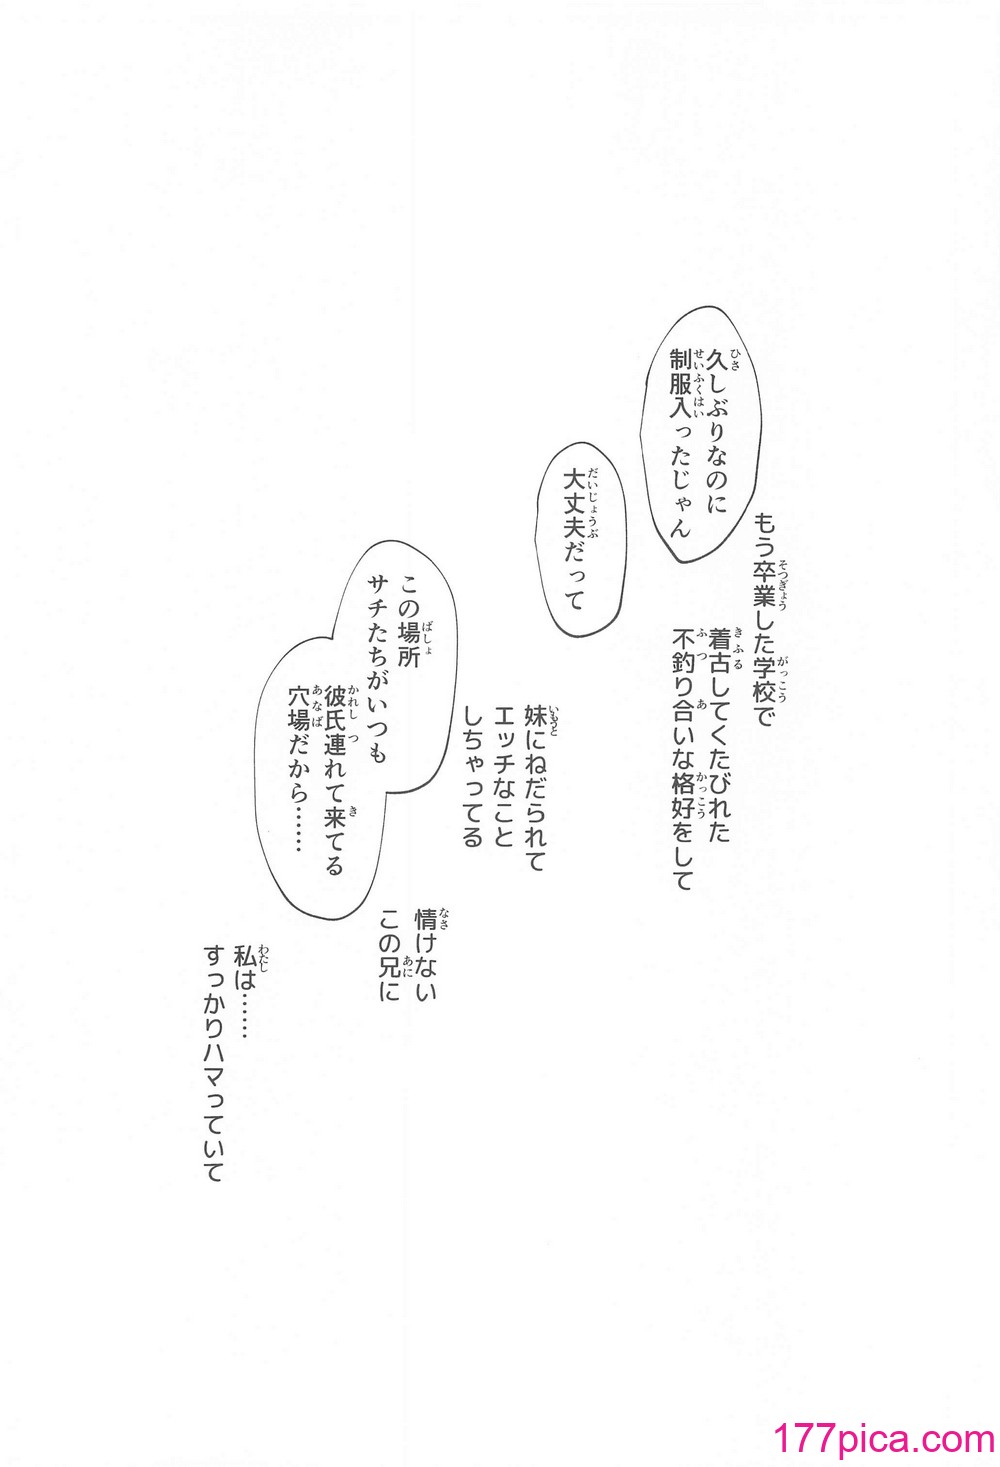 久しぶりなのに
制服入ったじゃん
もう卒業した学校で
着古してくたびれた
不釣り合いな格好をして
大丈夫だって
妹にねだられて
エッチなこと
しちゃってる
この場所
サチたちがいつも
彼氏連れて来てる
穴場だから……
情けない
この兄に
私は……
すっかりハマっていて
177pica.com